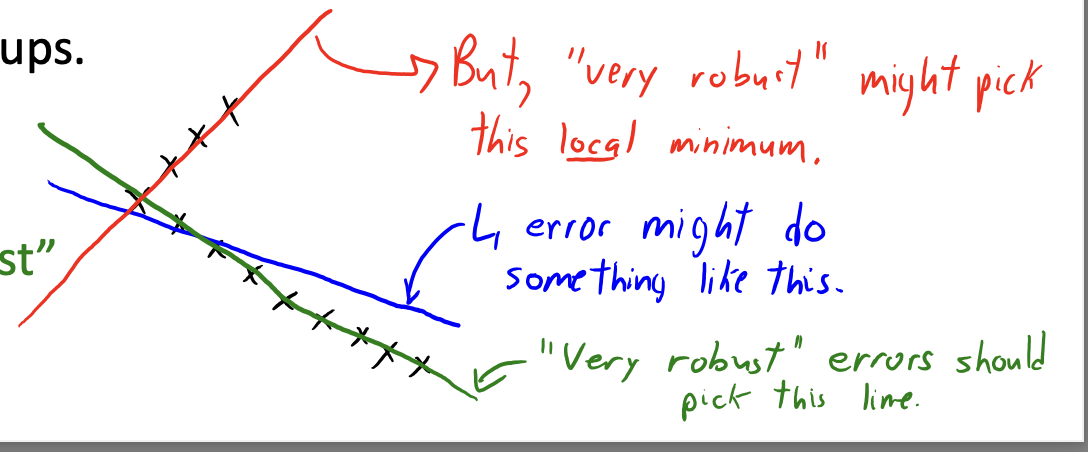 ups.
But, "very robust" might pick
this local minimum.
st”
L1 error might do
something like this.
"Very robust" errors should
pick this line.